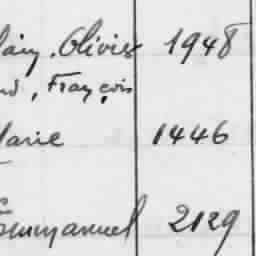 Olivier 1948
François
Marie 1446
Emmanuel 2129